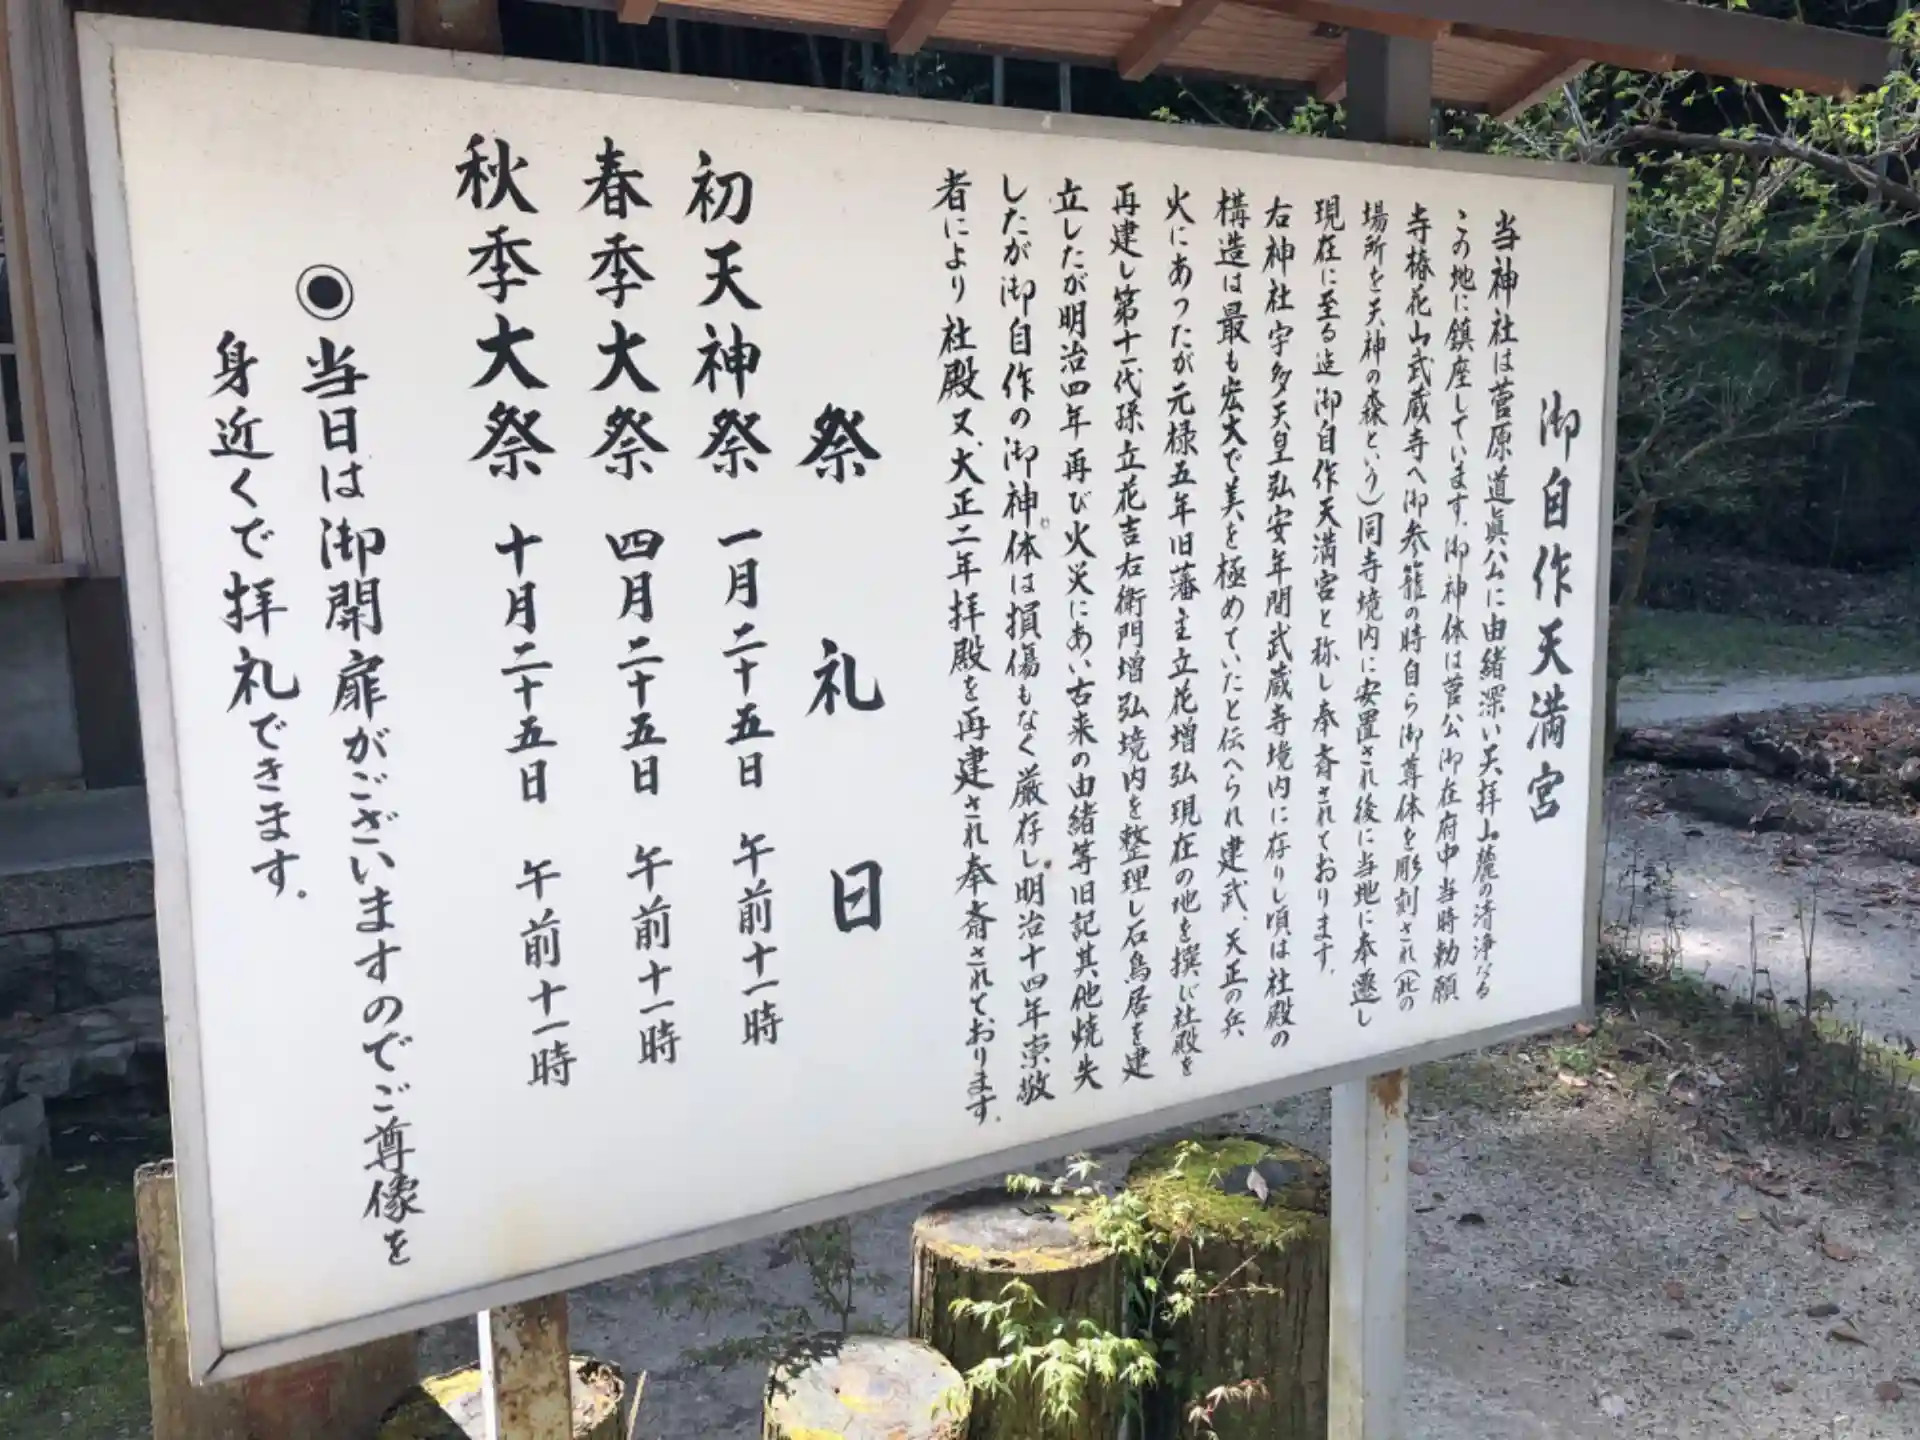 御自作天満宮
当神社は菅原道眞公に由緒深い天拝山麓の清浄なる
この地に鎮座しています。御神体は菅公御在府中当時勅願
寺椿花山武蔵寺へ御参籠の時自ら御尊体を彫刻され（此の
場所を天神の森という）同寺境内に安置され後に当地に奉遷し
現在に至る迄御自作天満宮と称し奉斎されております。
右神社宇多天皇弘安年間武蔵寺境内に存りし頃は社殿の
構造は最も宏大で美を極めていたと伝へられ建武、天正の兵
火にあつたが元禄五年旧藩主立花増弘現在の地を撰じ社殿を
再建し第十一代孫立花吉右衛門増弘境内を整理し石鳥居を建
立したが明治四年再び火災にあい古来の由緒等旧記其他焼失
したが御自作の御神体は損傷もなく厳存し明治十四年崇敬
者により社殿又、大正二年拝殿を再建され奉斎されております。
祭礼日
初天神祭 一月二十五日 午前十一時
春季大祭 四月二十五日 午前十一時
秋季大祭 十月二十五日 午前十一時
◉当日は御開扉がございますのでご尊像を
身近くで拝礼できます。